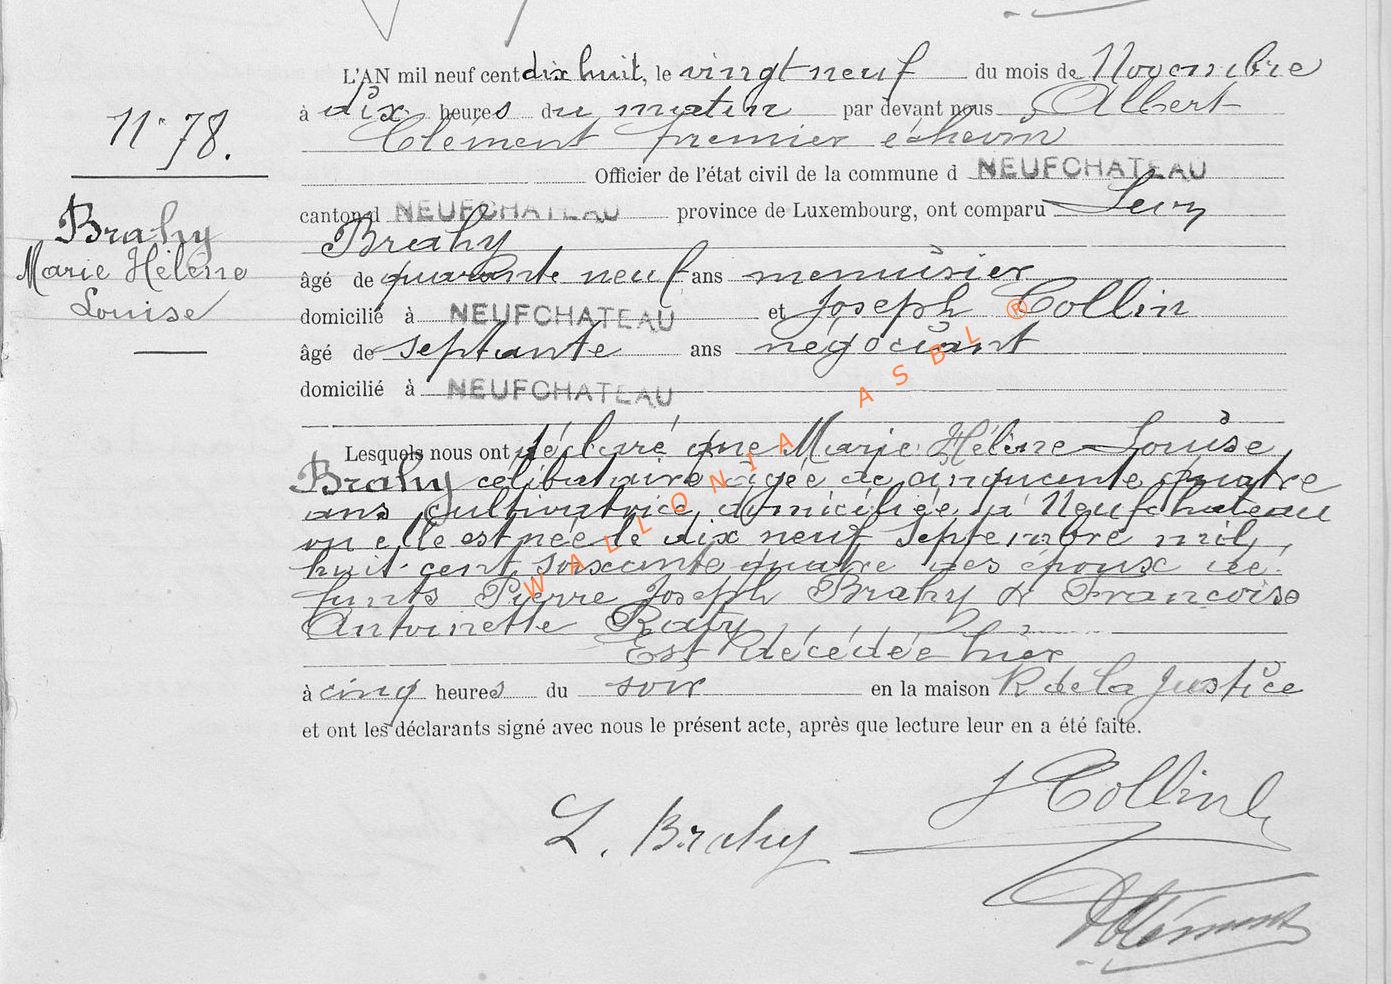 L'AN mil neuf cent dix huit, le vingt neuf du mois de Novembre
à dix heures du matin par devant nous Albert
Clément premier échevin
N° 78.
Officier de l'état civil de la commune d NEUFCHATEAU
canton d NEUFCHATEAU province de Luxembourg, ont comparu
Brahy
Brahy
Marie Hélène
Louise
âgé de quarante neuf ans menuisier
domicilié à NEUFCHATEAU et Joseph Collin
âgé de septante ans négociant
domicilié à NEUFCHATEAU
Lesquels nous ont déclaré que Marie Hélène Louise
Brahy célibataire âgée de cinquante quatre
ans cultivatrice, domiciliée à Neufchateau
où elle est née le dix neuf Septembre mil
huit cent soixante quatre des époux dé-
funts Pierre Joseph Brahy & Francoise
Antoinette Raty
Est décédée hier
à cinq heures du soir en la maison R de la Justice
et ont les déclarants signé avec nous le présent acte, après que lecture leur en a été faite.
J Collin
L. Brahy
AClément
WALLONIA ASBL ®